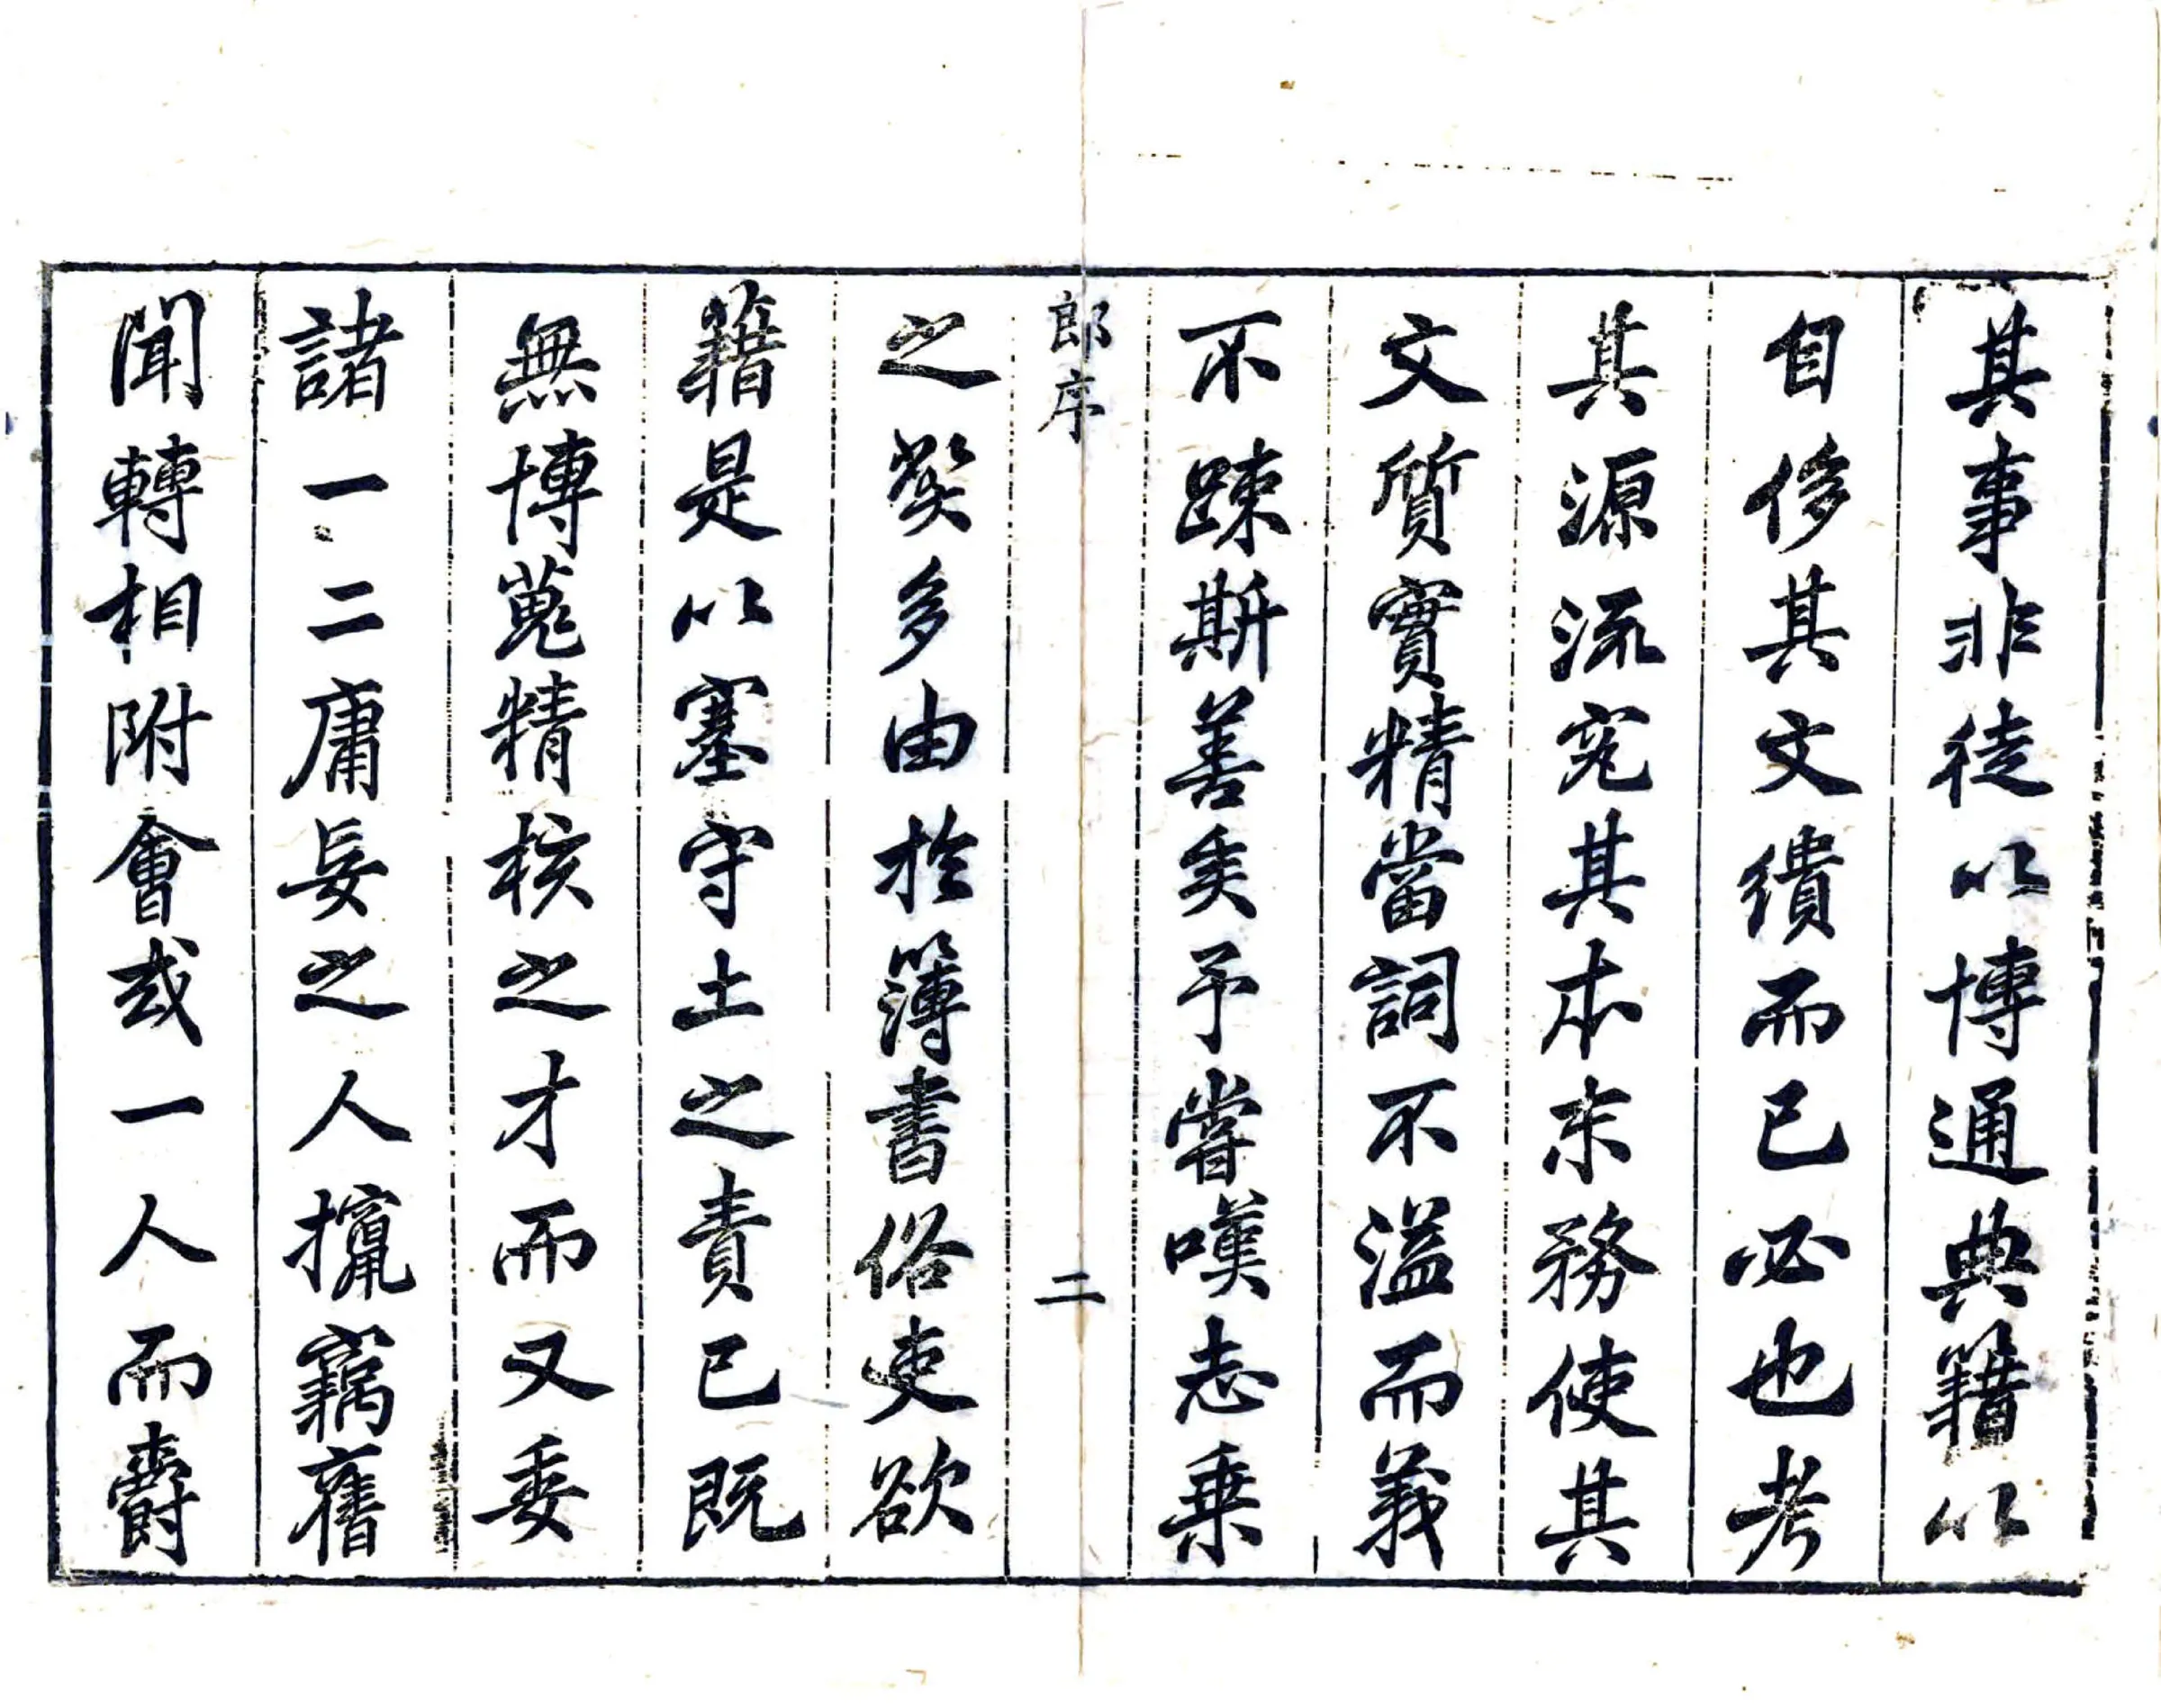 其事非徒以博通典籍以
自侈其文繢而已必也考
其源流究其本末務使其
文質實精當詞不溢而義
不踈斯善矣予嘗嘆志乗
郎序
二
之獘多由於簿書俗吏欲
籍是以塞守土之責已既
無博蒐精核之才而又委
諸一二庸妄之人攛竊舊
聞轉相附會或一人而爵